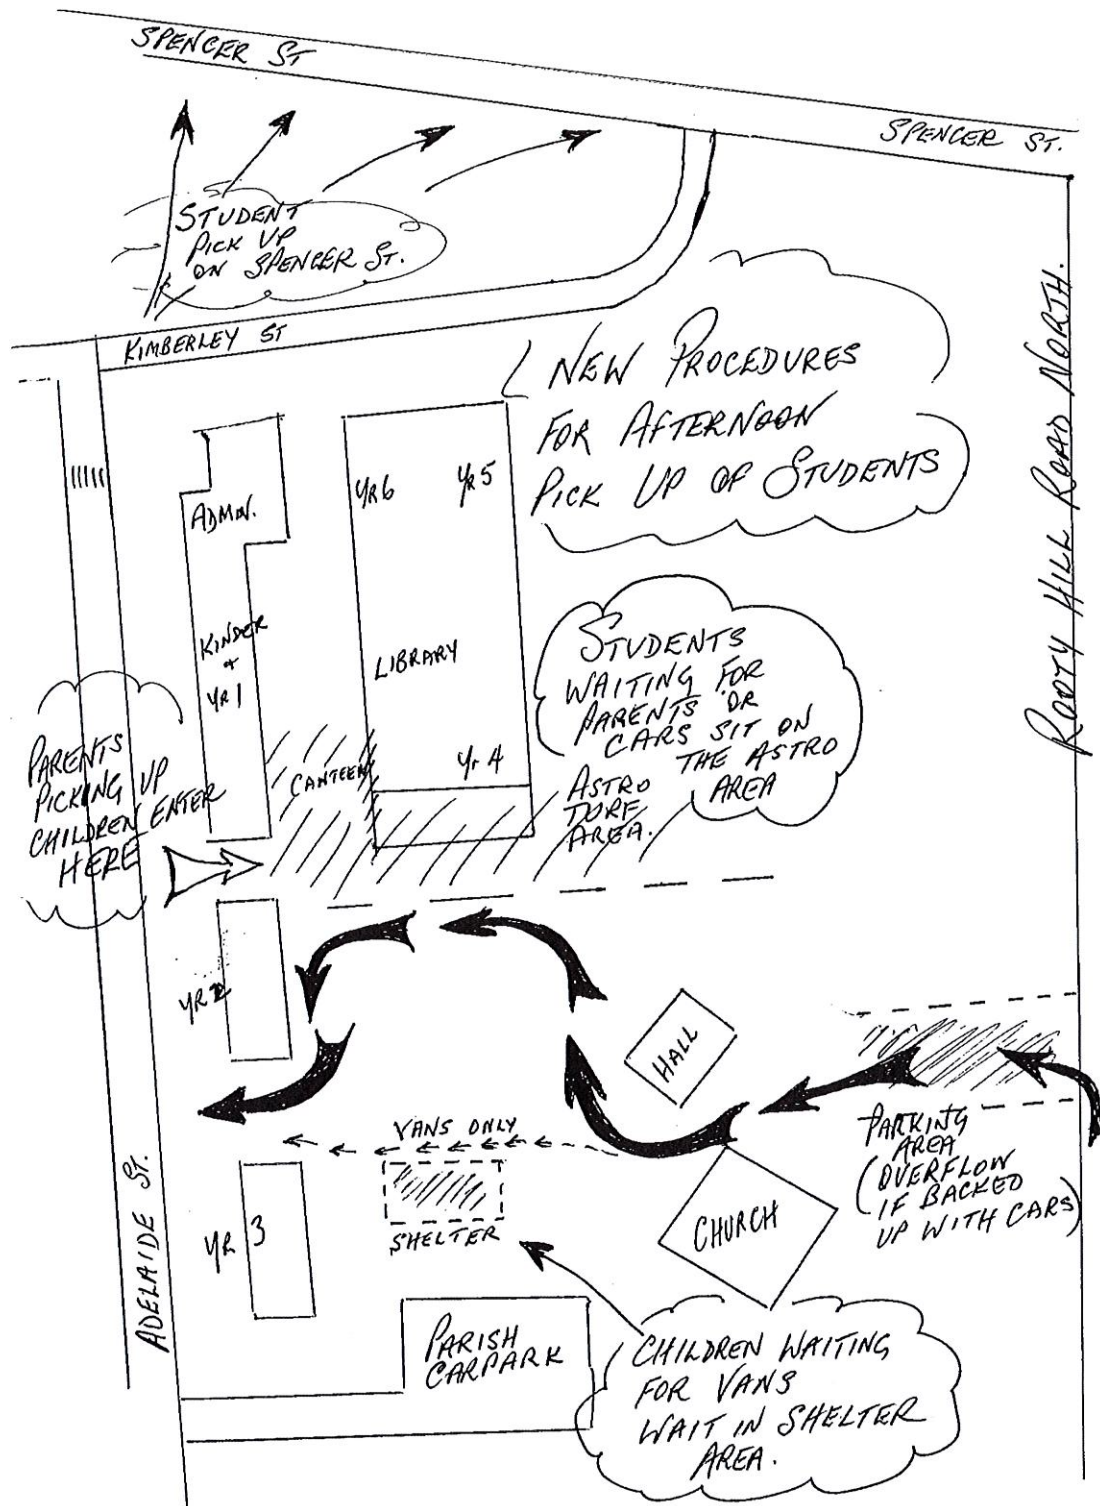 SPENCER ST
SPENCER ST.
STUDENT
PICK UP
ON SPENCER ST.
KIMBERLEY ST
NEW PROCEDURES
FOR AFTERNOON
PICK UP OF STUDENTS
ROOTY HILL ROAD NORTH.
ADMIN.
YR6
YR5
KINDER
+
YR1
LIBRARY
STUDENTS
WAITING FOR
PARENTS OR
CARS SIT ON
THE ASTRO
AREA
PARENTS
PICKING UP
CHILDREN ENTER
HERE
CANTEEN
Yr 4
ASTRO
TURF
AREA.
YR 2
HALL
VANS ONLY
PARKING
AREA
(OVERFLOW
IF BACKED
UP WITH CARS)
ADELAIDE ST.
YR 3
SHELTER
CHURCH
PARISH
CARPARK
CHILDREN WAITING
FOR VANS
WAIT IN SHELTER
AREA.